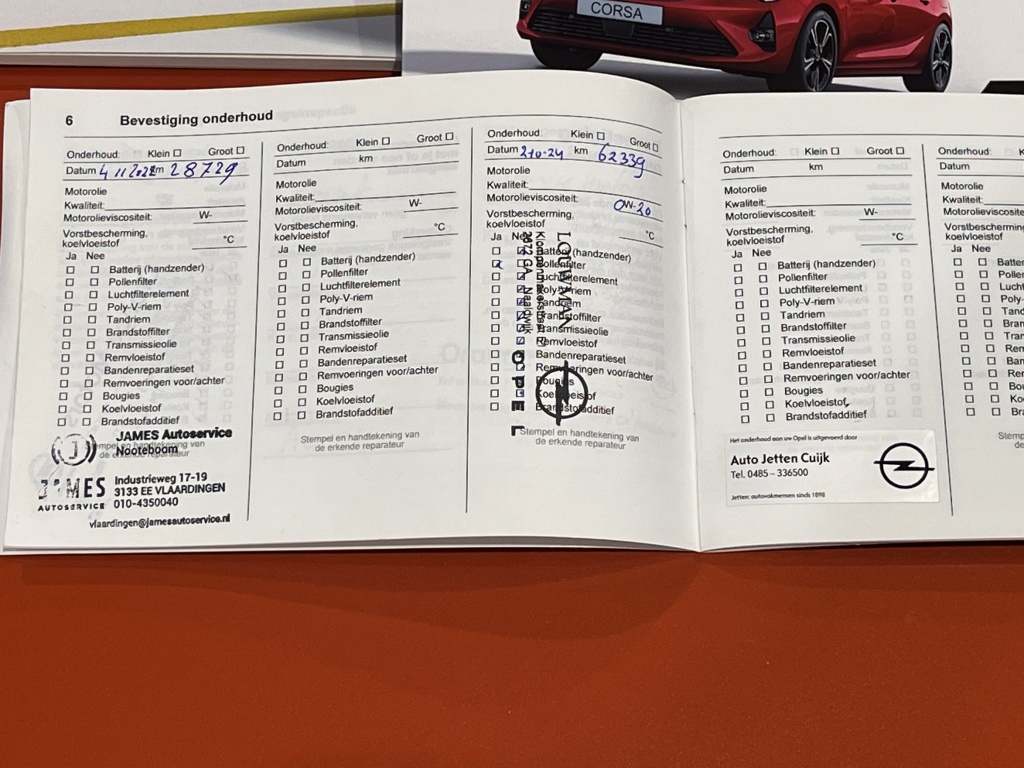 CORSA
6 Bevestiging onderhoud
Onderhoud: Klein ☐ Groot ☐
Datum 4 11 2022 km 28729
Motorolie
Kwaliteit:
Motorolieviscositeit: W-
Vorstbescherming,
koelvloeistof °C
Ja Nee
☐ ☐ Batterij (handzender)
☐ ☐ Pollenfilter
☐ ☐ Luchtfilterelement
☐ ☐ Poly-V-riem
☐ ☐ Tandriem
☐ ☐ Brandstoffilter
☐ ☐ Transmissieolie
☐ ☐ Remvloeistof
☐ ☐ Bandenreparatieset
☐ ☐ Remvoeringen voor/achter
☐ ☐ Bougies
☐ ☐ Koelvloeistof
☐ ☐ Brandstofadditief
Stempel en handtekening van
de erkende reparateur
JAMES Autoservice
Nooteboom
JAMES
AUTOSERVICE
Industrieweg 17-19
3133 EE VLAARDINGEN
010-4350040
vlaardingen@jamesautoservice.nl
Onderhoud: Klein ☐ Groot ☐
Datum km
Motorolie
Kwaliteit:
Motorolieviscositeit: W-
Vorstbescherming,
koelvloeistof °C
Ja Nee
☐ ☐ Batterij (handzender)
☐ ☐ Pollenfilter
☐ ☐ Luchtfilterelement
☐ ☐ Poly-V-riem
☐ ☐ Tandriem
☐ ☐ Brandstoffilter
☐ ☐ Transmissieolie
☐ ☐ Remvloeistof
☐ ☐ Bandenreparatieset
☐ ☐ Remvoeringen voor/achter
☐ ☐ Bougies
☐ ☐ Koelvloeistof
☐ ☐ Brandstofadditief
Stempel en handtekening van
de erkende reparateur
Onderhoud: Klein ☐ Groot ☐
Datum 2-10-24 km 62339
Motorolie
Kwaliteit:
Motorolieviscositeit: 0W-20
Vorstbescherming,
koelvloeistof °C
Ja Nee
Batterij (handzender)
Pollenfilter
Luchtfilterelement
Poly-V-riem
Tandriem
Brandstoffilter
Transmissieolie
Remvloeistof
Bandenreparatieset
Remvoeringen voor/achter
Bougies
Koelvloeistof
Brandstofadditief
Stempel en handtekening van
de erkende reparateur
LOUWMAN
2672 GA Naaldwijk
OPEL
Onderhoud: ☐ Klein ☐ Groot ☐
Datum km
Motorolie
Kwaliteit:
Motorolieviscositeit: W-
Vorstbescherming,
koelvloeistof °C
Ja Nee
☐ ☐ Batterij (handzender)
☐ ☐ Pollenfilter
☐ ☐ Luchtfilterelement
☐ ☐ Poly-V-riem
☐ ☐ Tandriem
☐ ☐ Brandstoffilter
☐ ☐ Transmissieolie
☐ ☐ Remvloeistof
☐ ☐ Bandenreparatieset
☐ ☐ Remvoeringen voor/achter
☐ ☐ Bougies
☐ ☐ Koelvloeistof
☐ ☐ Brandstofadditief
Het onderhoud aan uw Opel is uitgevoerd door
Auto Jetten Cuijk
Tel. 0485 - 336500
Jetten: autovakmensen sinds 1898
Onderhoud:
Datum
Motorolie
Kwaliteit:
Motorolieviscositeit:
Vorstbescherming,
koelvloeistof
Ja Nee